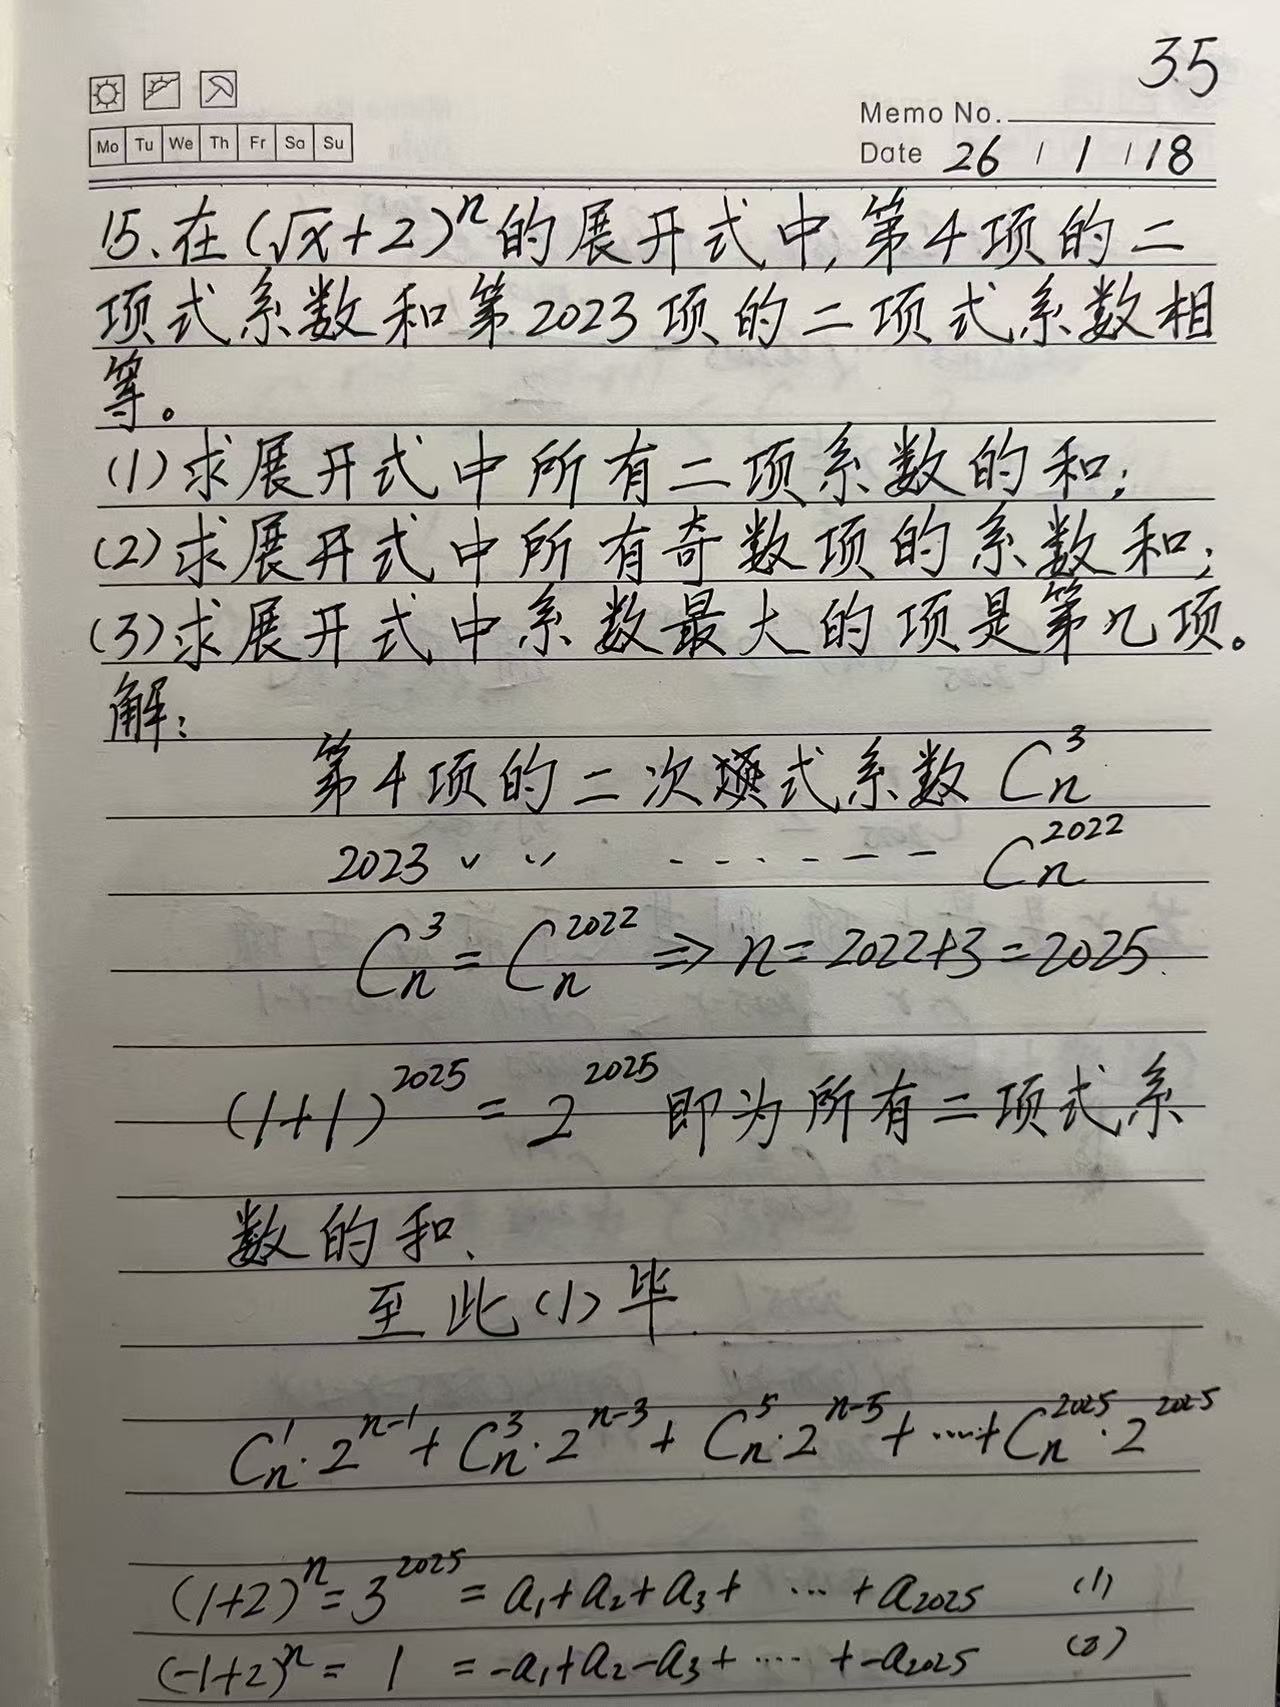 35
Memo No.
Mo Tu We Th Fr Sa Su
Date 26 / 1 / 18
15、在(√x+2)^n的展开式中,第4项的二
项式系数和第2023项的二项式系数相
等。
(1)求展开式中所有二项系数的和;
(2)求展开式中所有奇数项的系数和;
(3)求展开式中系数最大的项是第几项。
解:
第4项的二次项式系数 C_n^3
2023 〃 〃 ------- C_n^2022
C_n^3 = C_n^2022 ⇒ n = 2022+3 = 2025.
(1+1)^2025 = 2^2025 即为所有二项式系
数的和、
至此(1)毕.
C_n^1·2^(n-1) + C_n^3·2^(n-3) + C_n^5·2^(n-5) + ···· + C_n^2025·2^2025
(1+2)^n = 3^2025 = a_1+a_2+a_3+ ··· + a_2025 (1)
(-1+2)^n = 1 = -a_1+a_2-a_3+ ···· + -a_2025 (2)